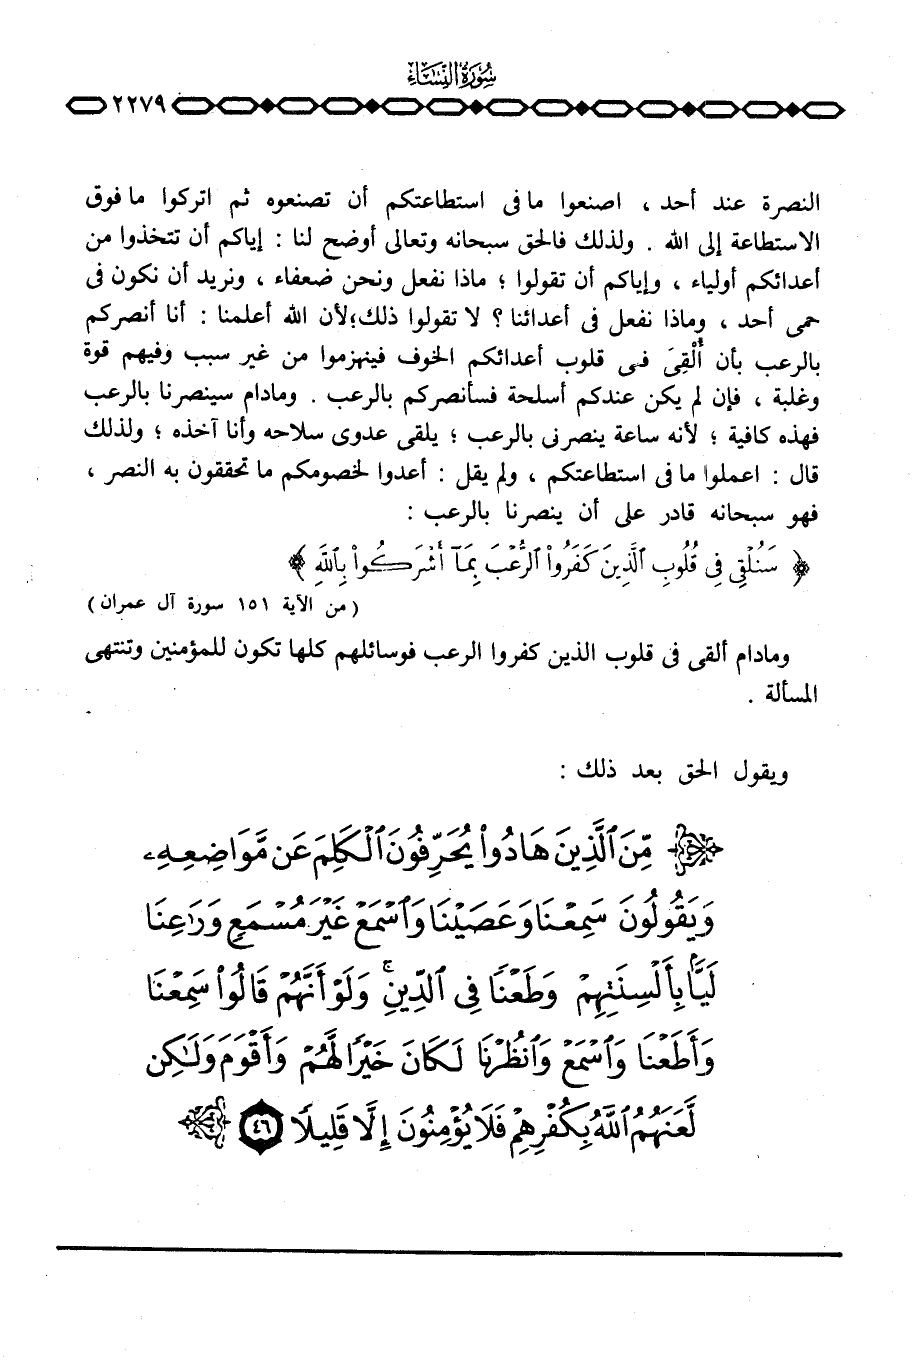 سُورَةُ النِّسَاءِ
٢٢٧٩
النصرة عند أحد ، اصنعوا ما فى استطاعتكم أن تصنعوه ثم اتركوا ما فوق
الاستطاعة إلى الله . ولذلك فالحق سبحانه وتعالى أوضح لنا : إياكم أن تتخذوا من
أعدائكم أولياء ، وإياكم أن تقولوا ؛ ماذا نفعل ونحن ضعفاء ، ونريد أن نكون فى
حمى أحد ، وماذا نفعل فى أعدائنا ؟ لا تقولوا ذلك؛لأن الله أعلمنا : أنا أنصركم
بالرعب بأن أُلْقِىَ فى قلوب أعدائكم الخوف فينهزموا من غير سبب وفيهم قوة
وغلبة ، فإن لم يكن عندكم أسلحة فسأنصركم بالرعب . ومادام سينصرنا بالرعب
فهذه كافية ؛ لأنه ساعة ينصرنى بالرعب ؛ يلقى عدوى سلاحه وأنا آخذه ؛ ولذلك
قال : اعملوا ما فى استطاعتكم ، ولم يقل : أعدوا لخصومكم ما تحققون به النصر ،
فهو سبحانه قادر على أن ينصرنا بالرعب :
﴿ سَنُلْقِى فِى قُلُوبِ ٱلَّذِينَ كَفَرُواْ ٱلرُّعْبَ بِمَآ أَشْرَكُواْ بِٱللَّهِ ﴾
( من الآية ١٥١ سورة آل عمران )
ومادام ألقى فى قلوب الذين كفروا الرعب فوسائلهم كلها تكون للمؤمنين وتنتهى
المسألة .
ويقول الحق بعد ذلك :
مِّنَ ٱلَّذِينَ هَادُواْ يُحَرِّفُونَ ٱلْكَلِمَ عَن مَّوَاضِعِهِۦ
وَيَقُولُونَ سَمِعْنَا وَعَصَيْنَا وَٱسْمَعْ غَيْرَ مُسْمَعٍ وَرَٰعِنَا
لَيَّۢا بِأَلْسِنَتِهِمْ وَطَعْنًا فِى ٱلدِّينِ ۚ وَلَوْ أَنَّهُمْ قَالُواْ سَمِعْنَا
وَأَطَعْنَا وَٱسْمَعْ وَٱنظُرْنَا لَكَانَ خَيْرًا لَّهُمْ وَأَقْوَمَ وَلَٰكِن
لَّعَنَهُمُ ٱللَّهُ بِكُفْرِهِمْ فَلَا يُؤْمِنُونَ إِلَّا قَلِيلًا ٤٦